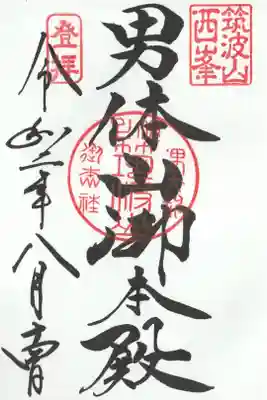 筑波山
西峯
男体山御本殿
登拝
令和二年八月